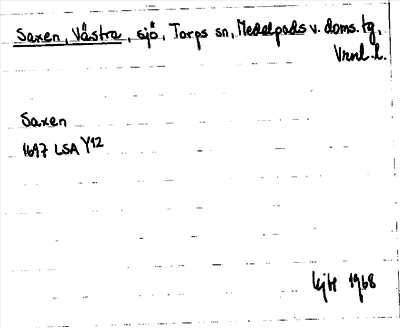 Saxen, Västra, sjö, Torps sn, Medelpads v. doms.tg,
Vrnl.l.
Saxen
1697 LSA Y12
1968